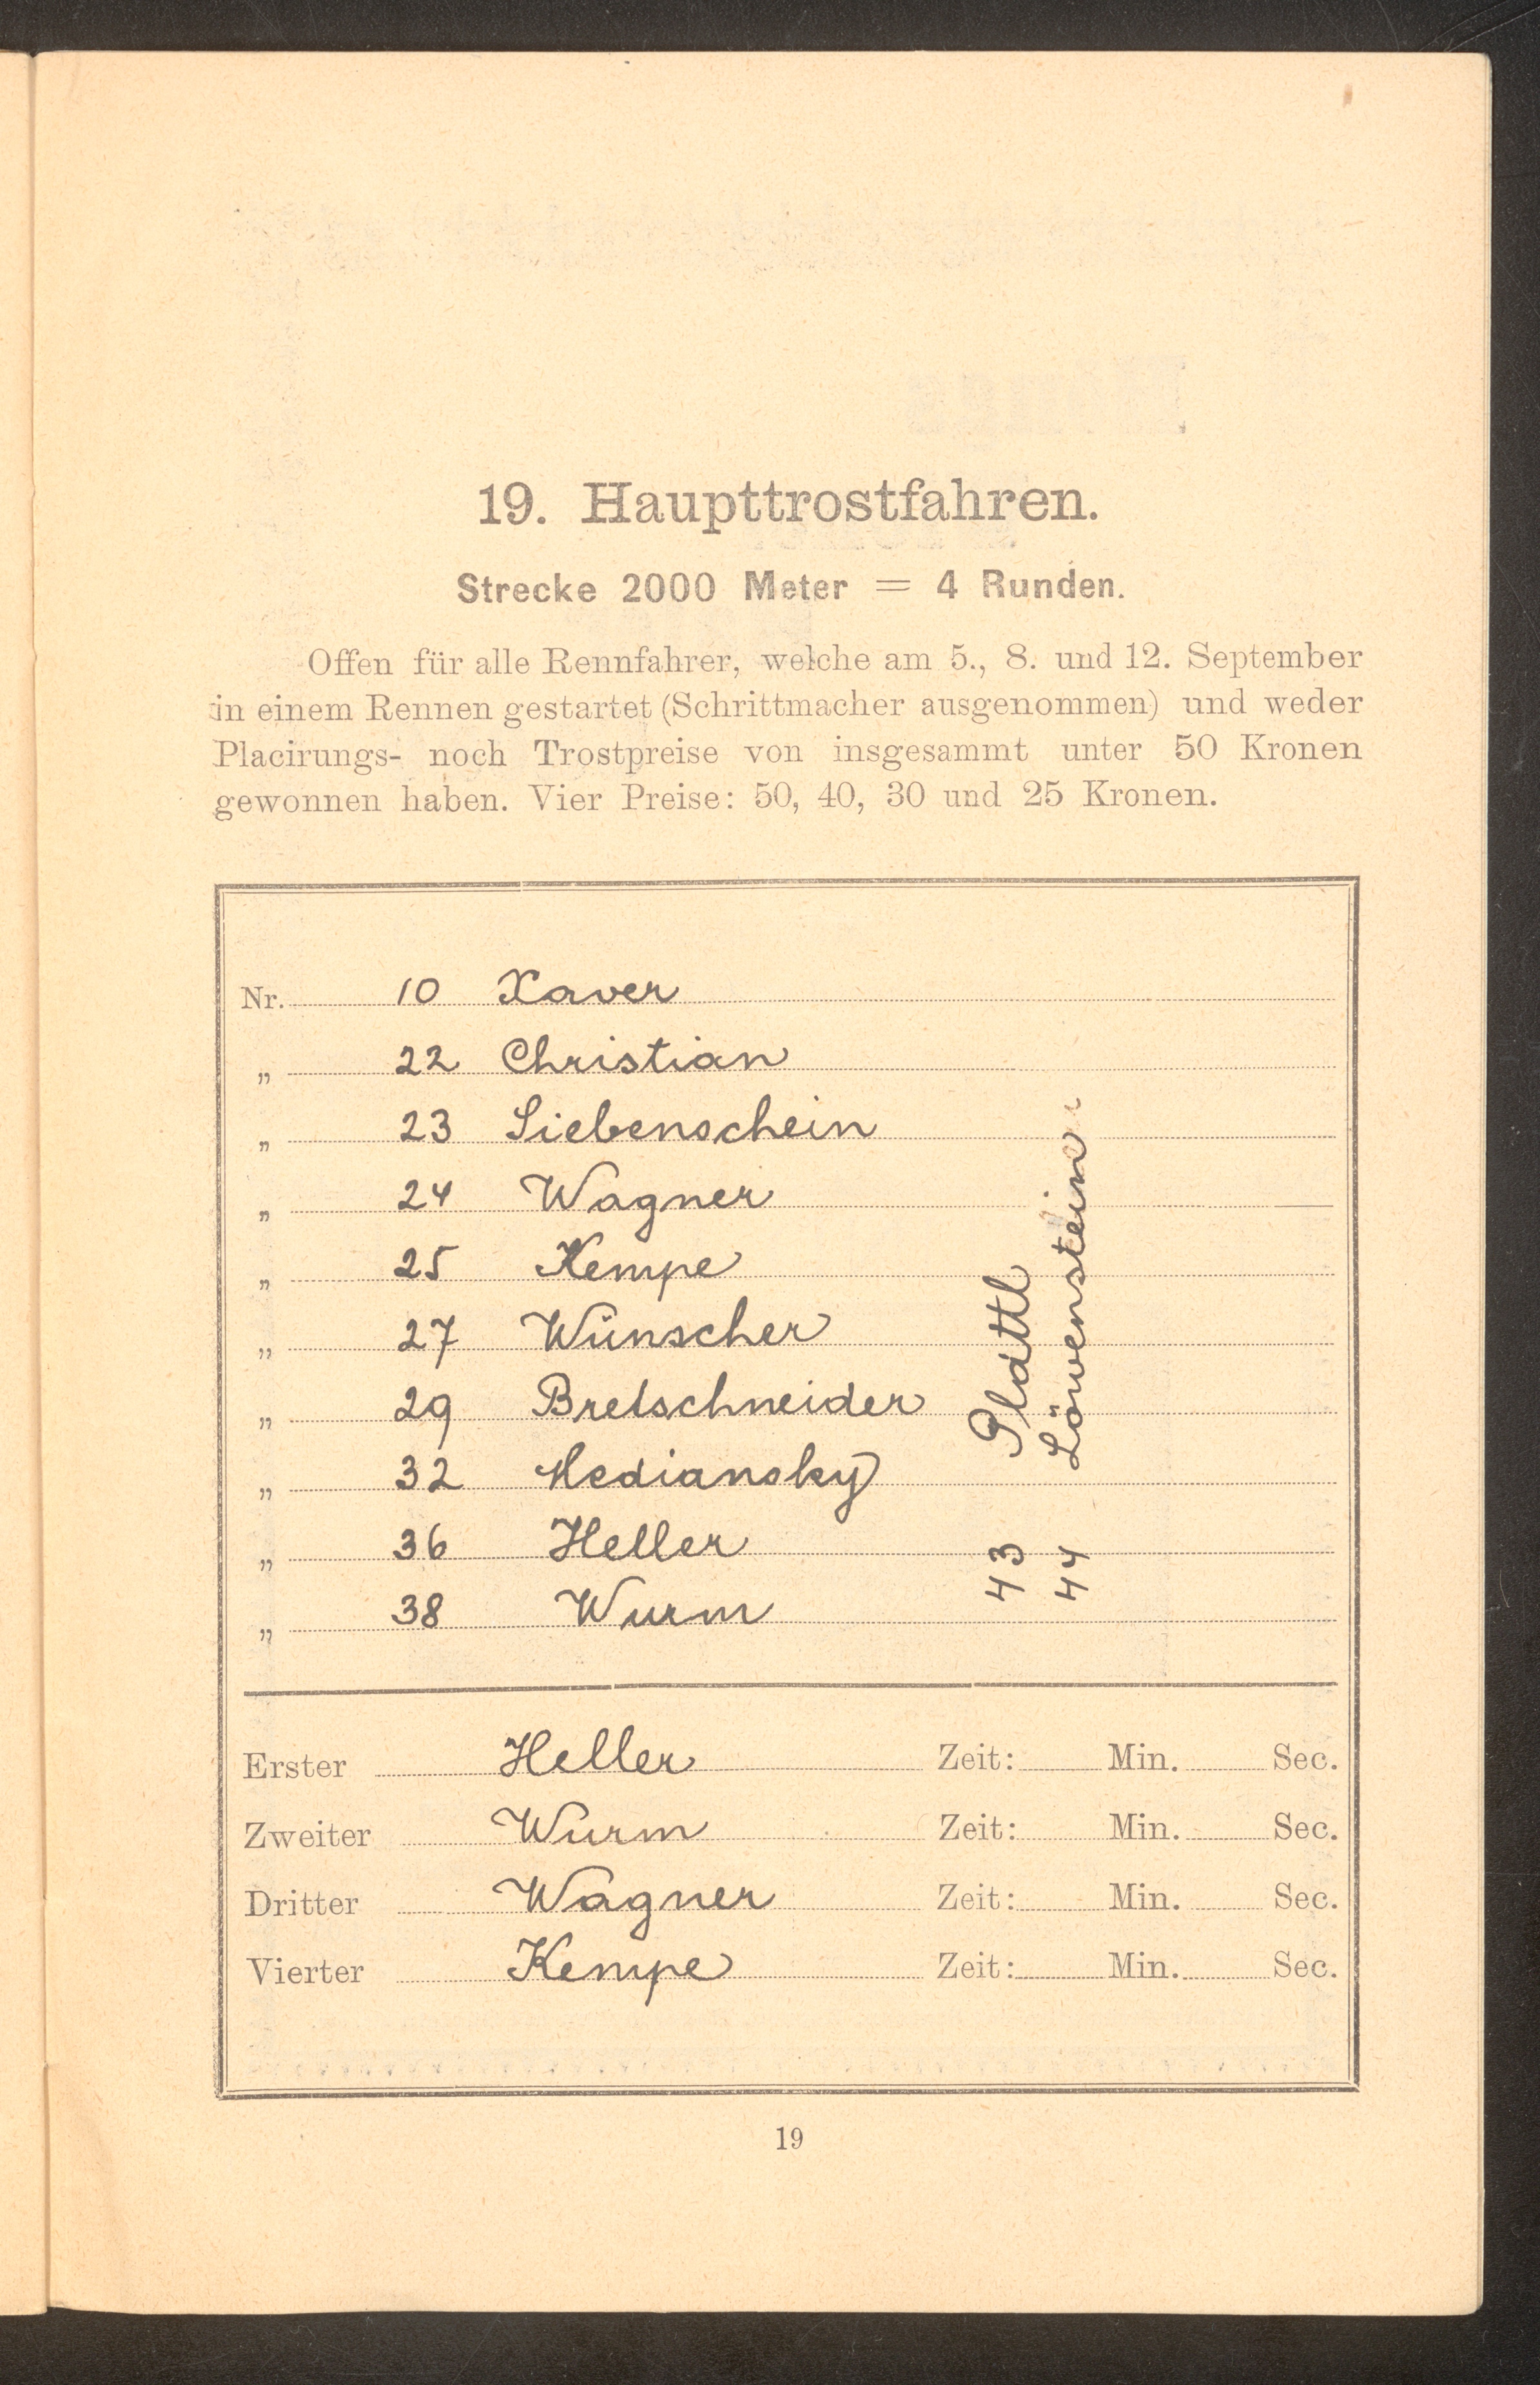 19. Haupttrostfahren.
Strecke 2000 Meter = 4 Runden.
Offen für alle Rennfahrer, welche am 5., 8. und 12. September
in einem Rennen gestartet (Schrittmacher ausgenommen) und weder
Placirungs- noch Trostpreise von insgesammt unter 50 Kronen
gewonnen haben. Vier Preise: 50, 40, 30 und 25 Kronen.
Nr. 10 Xaver
„ 22 Christian
„ 23 Siebenschein
„ 24 Wagner
„ 25 Kempe
„ 27 Wünscher
„ 29 Bretschneider
„ 32 Mediansky
„ 36 Heller
„ 38 Wurm
43 Plattl
44 Löwenstein
Erster Heller Zeit: Min. Sec.
Zweiter Wurm Zeit: Min. Sec.
Dritter Wagner Zeit: Min. Sec.
Vierter Kempe Zeit: Min. Sec.
19